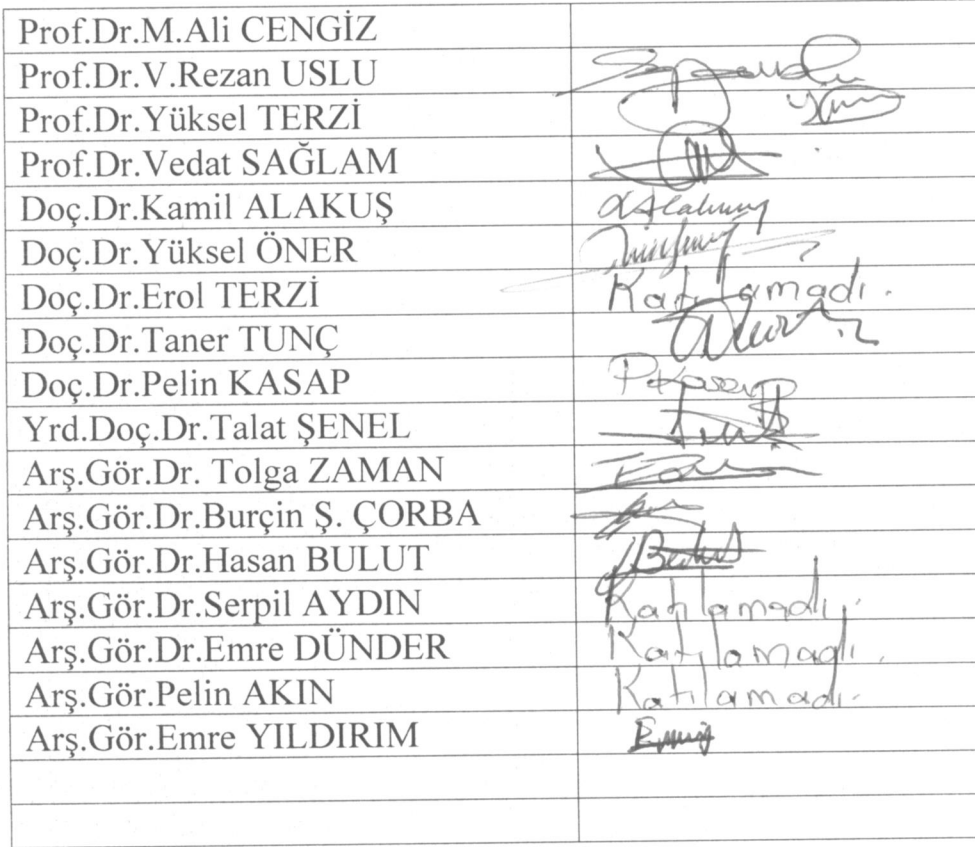 Prof.Dr.M.Ali CENGİZ
Prof.Dr.V.Rezan USLU
Prof.Dr.Yüksel TERZİ
Prof.Dr.Vedat SAĞLAM
Doç.Dr.Kamil ALAKUŞ
Doç.Dr.Yüksel ÖNER
Doç.Dr.Erol TERZİ Katılamadı.
Doç.Dr.Taner TUNÇ
Doç.Dr.Pelin KASAP
Yrd.Doç.Dr.Talat ŞENEL
Arş.Gör.Dr. Tolga ZAMAN
Arş.Gör.Dr.Burçin Ş. ÇORBA
Arş.Gör.Dr.Hasan BULUT
Arş.Gör.Dr.Serpil AYDIN Katılamadı.
Arş.Gör.Dr.Emre DÜNDER Katılamadı.
Arş.Gör.Pelin AKIN Katılamadı.
Arş.Gör.Emre YILDIRIM